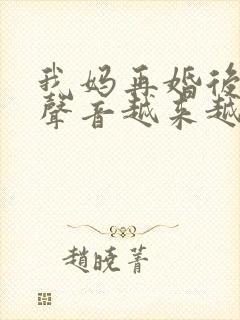 我妈再婚后
聲音越来越
趙曉菁